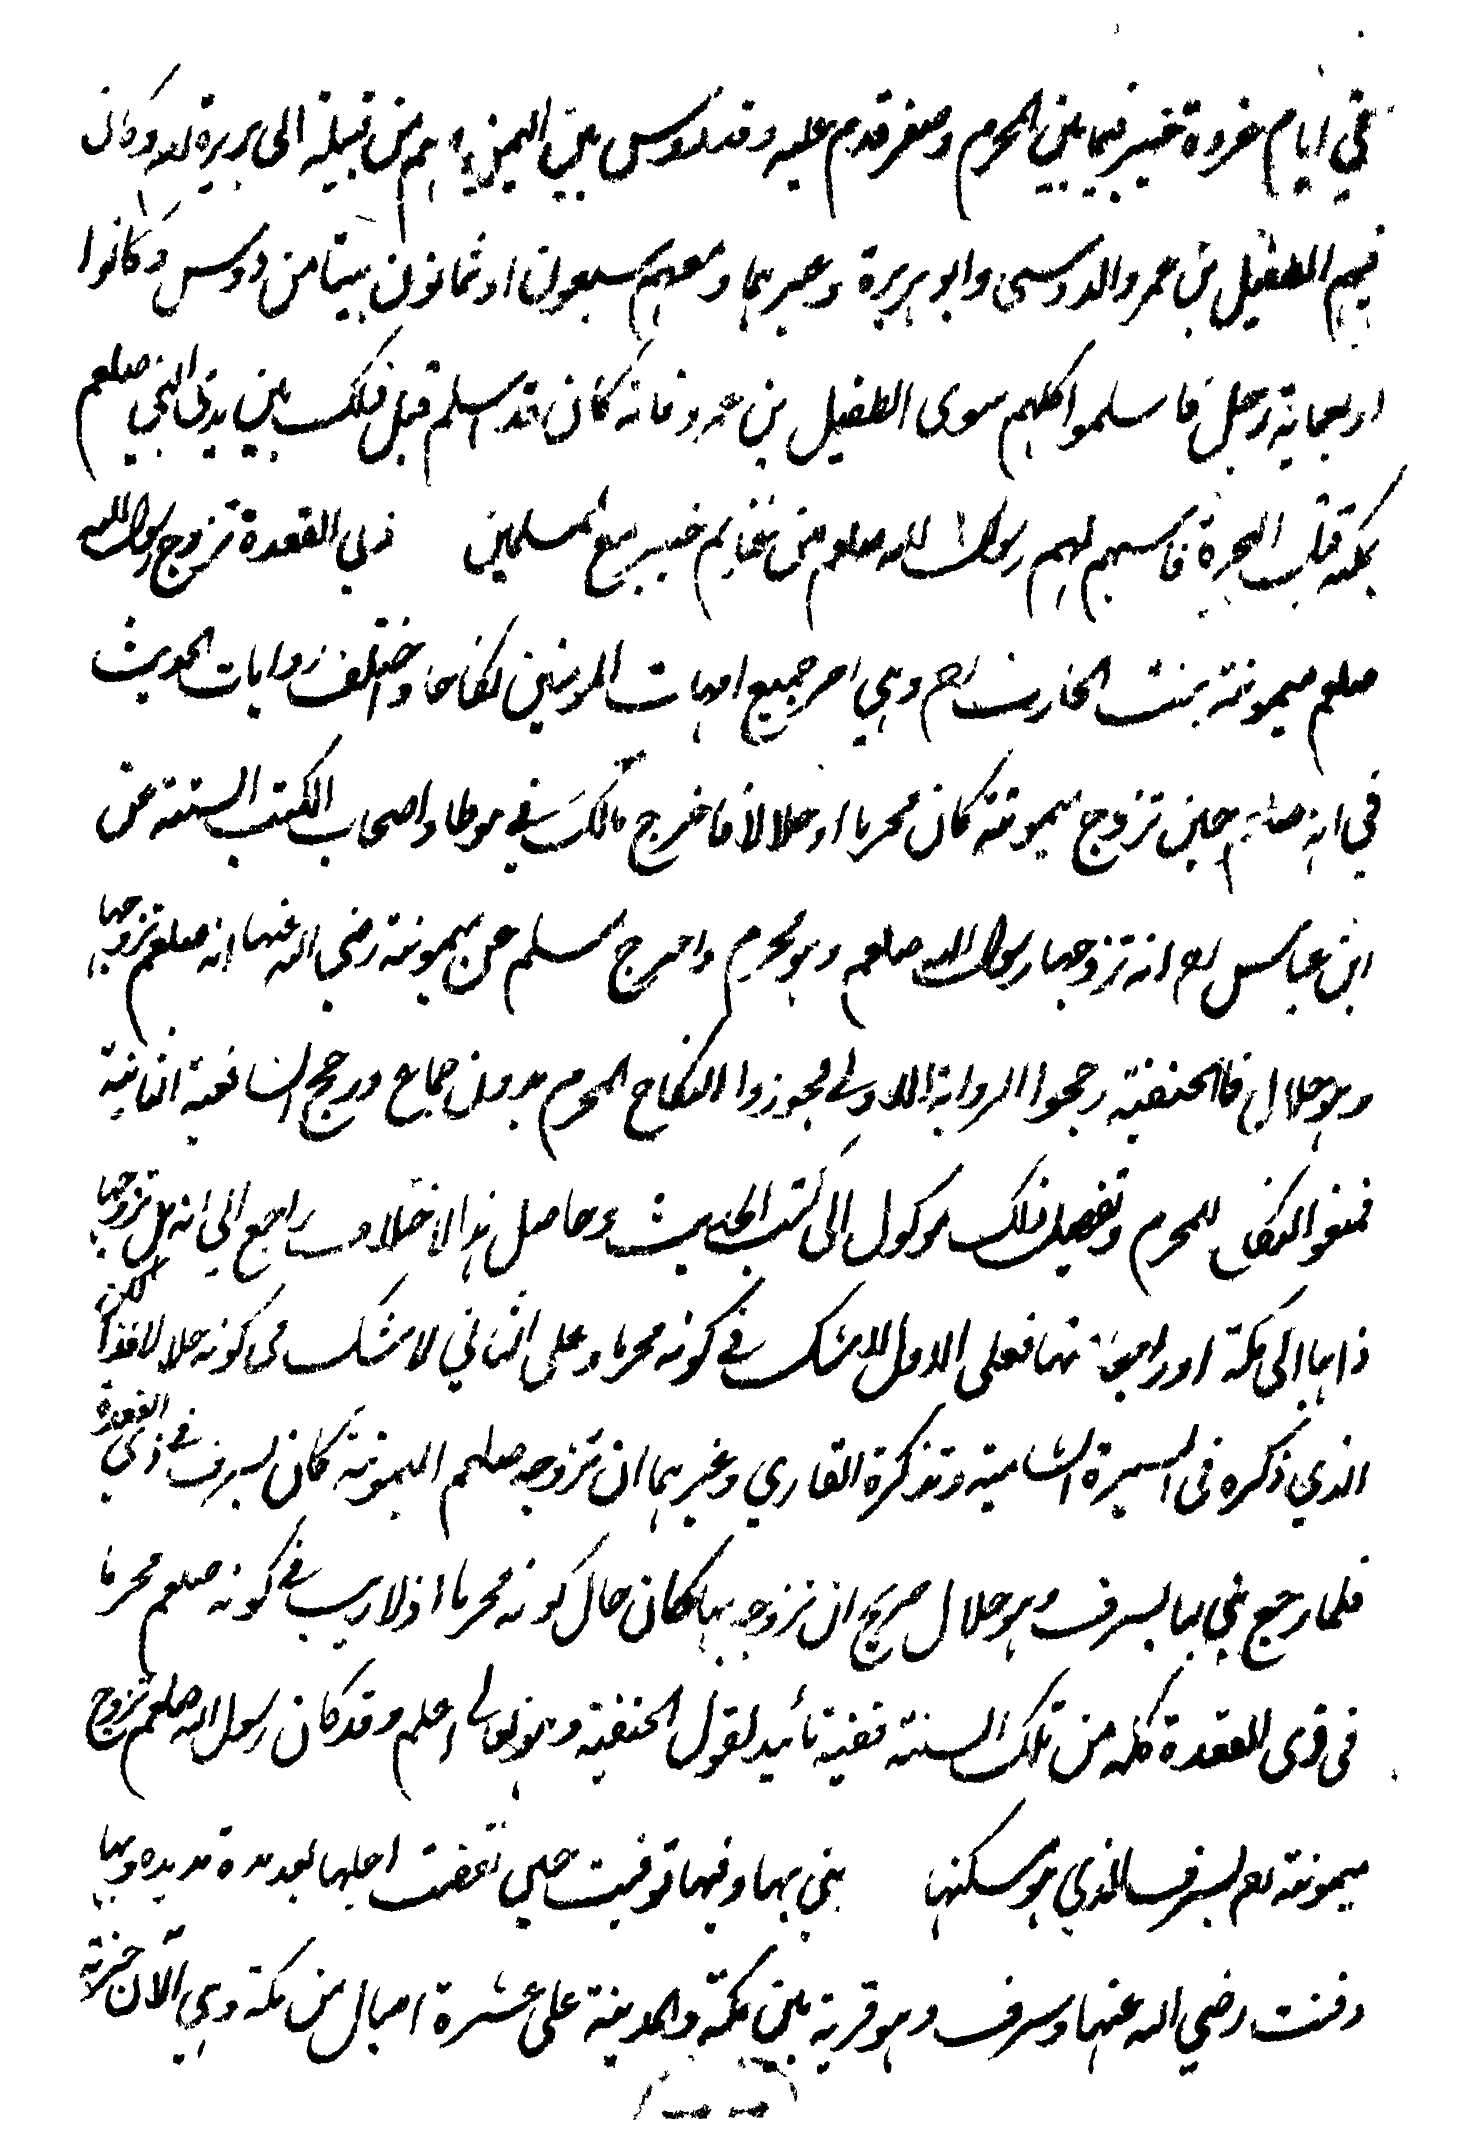 في ايام غزوة خيبر فيما بين المحرم وصفر قدم عليه وفد دوس من اليمن وهم من قبيلة ابي هريرة رضه وكان
فيهم الطفيل بن عمرو الدوسي وابو هريرة وغيرهما ومعهم سبعون او ثمانون بيتا من دوس وكانوا
اربعماية رجل فاسلموا كلهم سوى الطفيل بن عمرو فانه كان قد اسلم قبل ذلك بين يدي النبي صلعم
بمكة قبل الهجرة فاسهم لهم رسول الله صلعم من غنايم خيبر مع المسلمين ذي القعدة تزوج رسول الله
صلعم ميمونة بنت الحارث رضه وهي اخر جميع امهات المؤمنين نكاحا واختلف روايات الحديث
في انه صلعم حين تزوج ميمونة كان محرما او حلالا فاخرج مالك في موطا واصحاب الكتب الستة عن
ابن عباس رضه انه تزوجها رسول الله صلعم وهو محرم واخرج مسلم عن ميمونة رضي الله عنها انه صلعم تزوجها
وهو حلال فالحنفية رجحوا الرواية الاولى فجوزوا النكاح المحرم بدون جماع ورجح الشافعية الثانية
فمنعوا النكاح للمحرم وتفصيل ذلك موكول الى كتب الحديث وحاصل هذا الاختلاف راجع الى انه هل تزوجها
ذاهبا الى مكة او راجعا عنها فعلى الاول لا شك في كونه محرما وعلى الثاني لا شك في كونه حلالا فهذا لكن
الذي ذكره في السيرة الشامية وتذكرة القاري وغيرهما ان تزوجه صلعم الميمونة كان بسرف في ذي القعدة
فلما رجع بني بها بسرف وهو حلال صريح ان تزوجه بها كان حال كونه محرما اذ لا ريب في كونه صلعم محرما
في ذي القعدة كله من تلك السنة ففيه تائيد لقول الحنفية وهو تعالى اعلم وقد كان رسول الله صلعم تزوج
ميمونة رضه بسرف الذي هو مسكنها بني بها وفيها توفيت حين انقضت اجلها بعد مدة مديدة وبها
دفنت رضي الله عنها وسرف وهو قرية بين مكة والمدينة على عشرة اميال من مكة وهي الآن